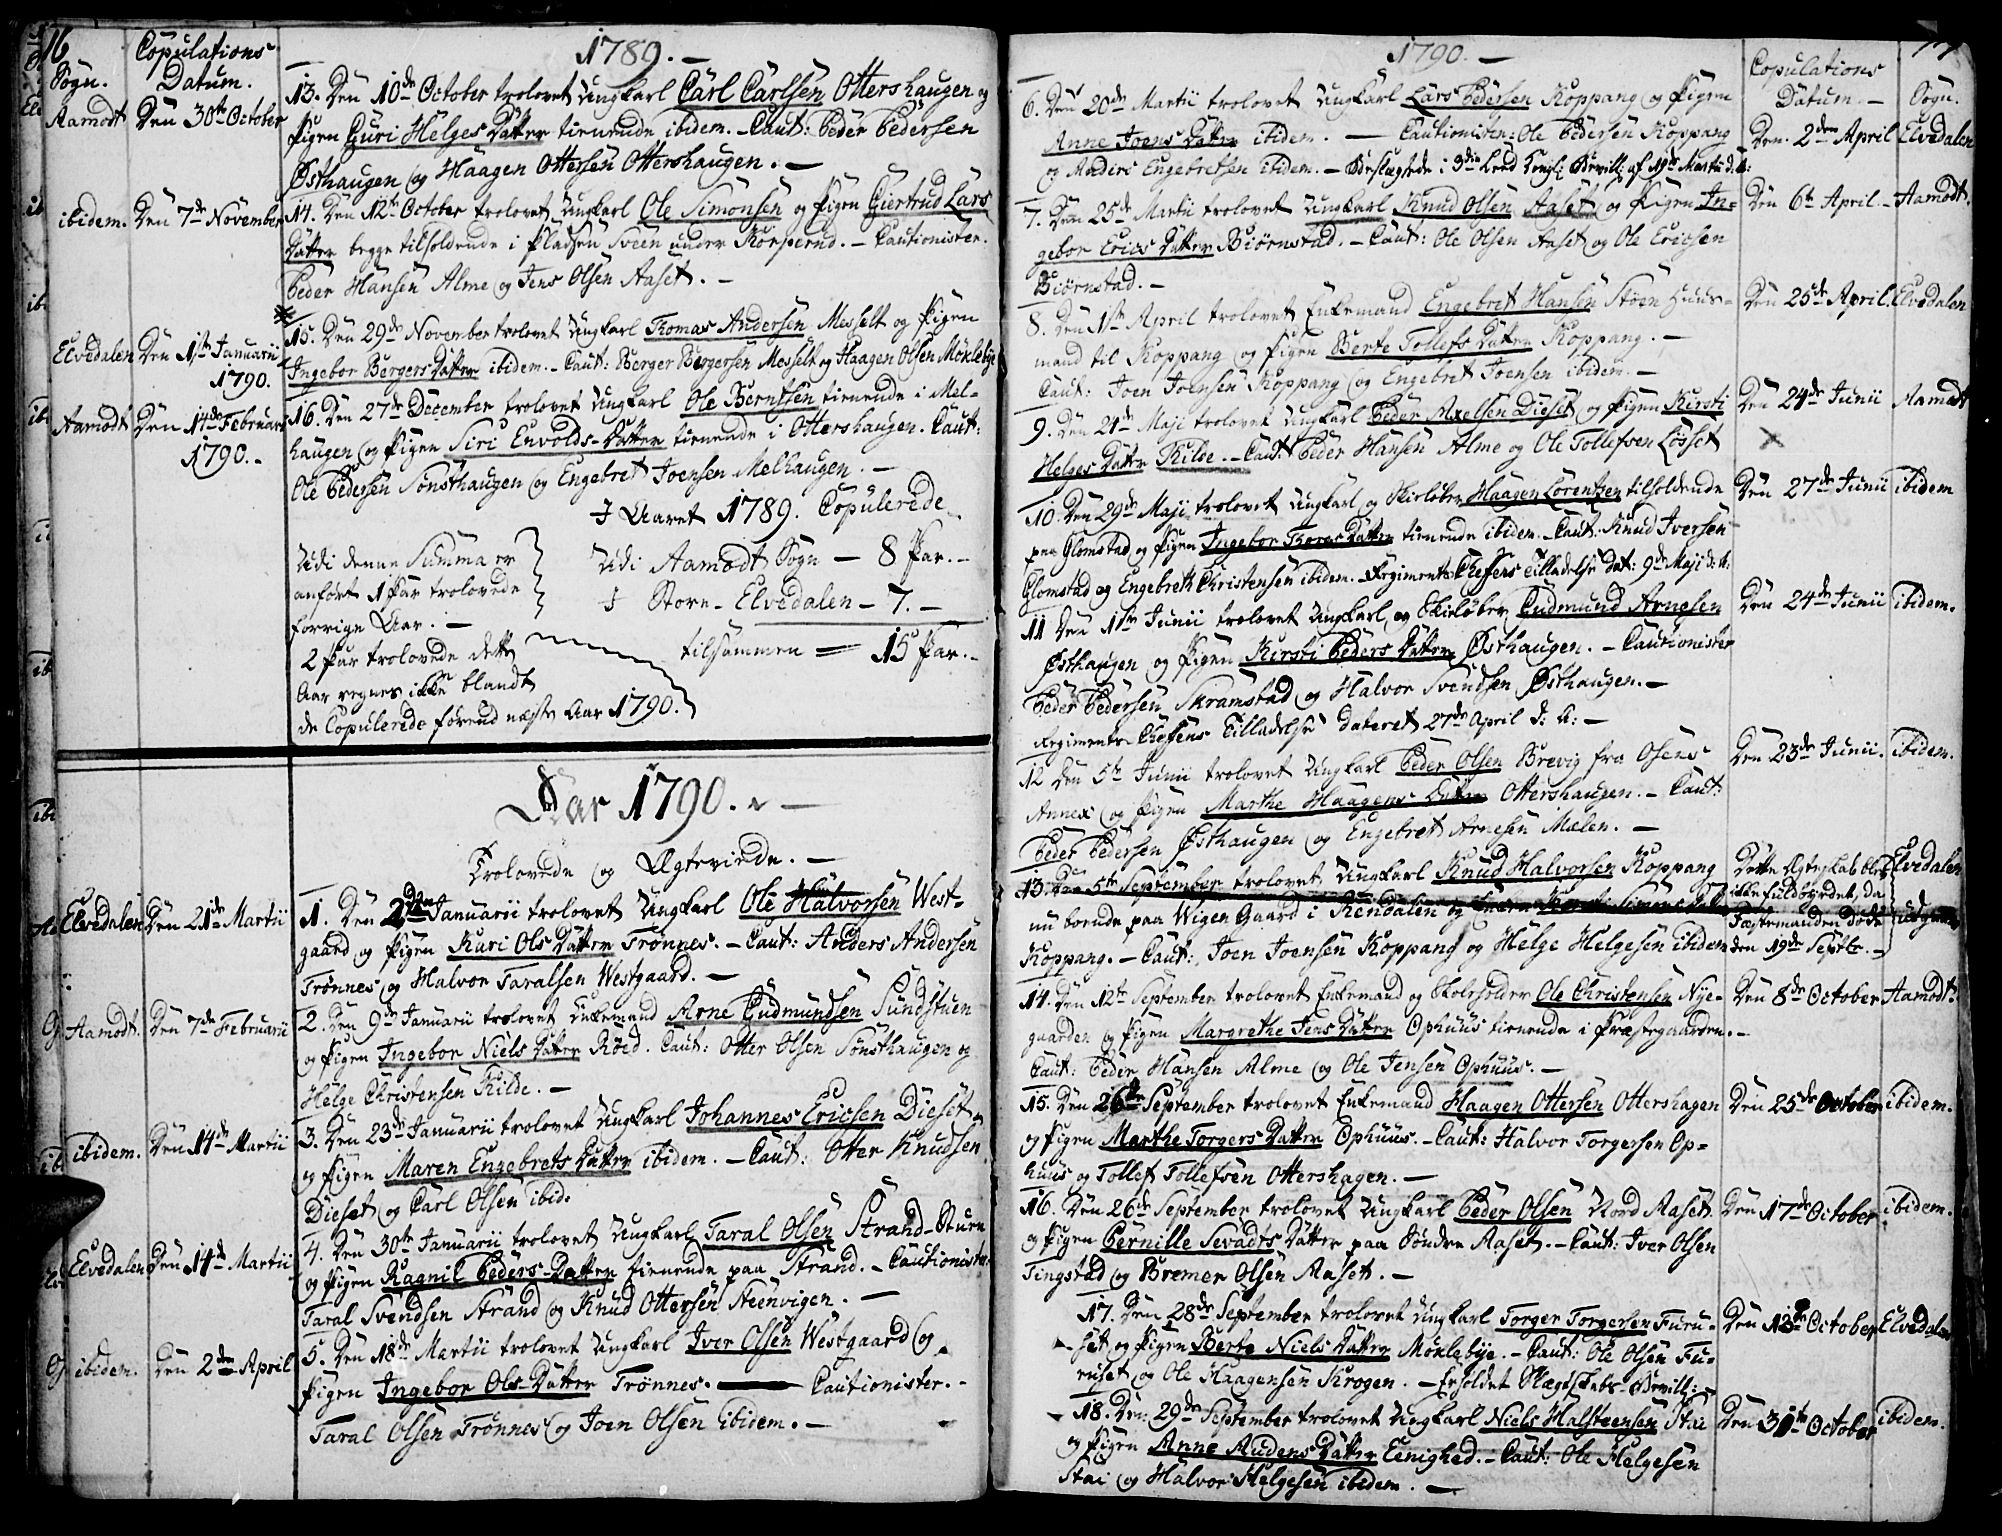 16
Sogn. Copulations Datum. 1789. —
Aamodt Den 30te October 13. Den 10de October trolovet Ungkarl Carl Carlsen Ottershaugen og
Pigen Guri Helges Datter tienende ibidem. - Caut: Peder Pedersen
Østhaugen og Haagen Ottersen Ottershaugen. —
ibidem. Den 7de November 14. Den 12te October trolovet Ungkarl Ole Simonsen og Pigen Giertrud Lars
Datter begge tilholdende i Pladsen Sveen under Korperud. - Cautionister.
Peder Hansen Alme og Jens Olsen Aaset. —
Elvedalen Den 1ste Januarii 1790. 15. Den 29de November trolovet Ungkarl Thomas Andersen Messelt og Pigen
Ingebor Bergers Datter ibidem. - Caut: Berger Bergersen Messelt og Haagen Olsen Møklebye
Aamodt Den 14de Februari 1790. - 16. Den 27de December trolovet Ungkarl Ole Berntsen tienende i Mel-
haugen og Pigen Siri Envolds-Datter tienende i Ottershaugen. Caut:
Ole Pedersen Sønsthaugen og Engebret Joensen Melhaugen. —
I Aaret 1789. Copulerede
Udi denne Summa er Udi Aamodt Sogn — 8 Par. -
anført 1 Par trolovede I Store-Elvedalen - 7. -
forrige Aar. — tilsammen = 15 Par. -
2 Par trolovede dette
Aar regnes ikke blandt
de Copulerede førend næste Aar 1790.
Aar 1790. —
Trolovede og Ægteviede. —
Elvedalen Den 21de Martii 1. Den 2den Januarii trolovet Ungkarl Ole Halvorsen West-
gaard og Pigen Kari Ols Datter Trønnes. - Caut: Anders Andersen
Trønnes og Halvor Taralsen Westgaard. —
Aamodt. Den 7de Februarii 2. Den 9de Januarii trolovet Enkemand Arne Gudmundsen Sundstuen
og Pigen Ingebor Niels Datter Røed. Caut: Otter Olsen Sønsthaugen og
Helge Christensen Kilde. —
ibidem. Den 14de Martii 3. Den 23de Januarii trolovet Ungkarl Johannes Ericsen Dieset
og Pigen Maren Engebrets Datter ibidem. - Caut: Otter Knudsen
Dieset og Carl Olsen ibid:
Elvedalen Den 14de Martii 4. Den 30te Januarii trolovet Ungkarl Taral Olsen Strand-Stuen
og Pigen Ragnil Peders-Datter tienende paa Strand. - Cautionister
Taral Svendsen Strand og Knud Ottersen Steenvigen. —
ibidem. Den 2den April 5. Den 18de Martii trolovet Ungkarl Iver Olsen Westgaard og
Pigen Ingebor Ols-Datter Trønnes. — Cautionister. -
Taral Olsen Trønnes og Joen Olsen ibidem. —
1790. — Copulations Datum. - Sogn.
6. Den 20de Martii trolovet Ungkarl Lars Pedersen Koppang og Pigen
Anne Joens Datter ibidem. — Cautionister: Ole Pedersen Koppang Den 2den April Elvedalen
og Anders Engebretsen ibidem. - Beslægtede i 3die Leed Kongl: Bevill: af 19de Martii d. A:
7. Den 25de Martii trolovet Ungkarl Knud Olsen Aaset og Pigen In- Den 6te April. - Aamodt.
gebor Erics Datter Biørnstad. - Caut: Ole Olsen Aaset og Ole Ericsen
Biørnstad. —
8. Den 1ste April trolovet Enkemand Engebret Hansen Støen Huus- Den 25de April. Elvedalen
mand til Koppang og Pigen Berte Tollefs Datter Koppang. —
Caut: Joen Joensen Koppang og Engebret Joensen ibidem. —
9. Den 24de Maji trolovet Ungkarl Peder Axelsen Dieset og Pigen Kirsti Den 24de Junii Aamodt
Helges Datter Kilde. - Caut Peder Hansen Alme og Ole Tollefsen Løsset
10. Den 29de Maji trolovet Ungkarl og Skieløber Haagen Lorentzen tilholdende Den 27de Junii ibidem
paa Glomstad og Pigen Ingebor Thores Datter tienende ibidem. - Caut. Knud Iversen
Glomstad og Engebreth Christensen ibidem. - Regiments Chefens Tilladelse dat: 9de Maji d. A:
11 Den 1ste Junii trolovet Ungkarl og Skieløber Gudmund Arnesen Den 24de Junii ibidem.
Østhaugen og Pigen Kirsti Peders Datter Østhaugen. - Cautionister
Peder Pedersen Skramstad og Halvor Svendsen Østhaugen. —
Regiments-Chefens Tilladelse dateret 27de April d: A: —
12 Den 5te Junii trolovet Ungkarl Peder Olsen Brevig fra Osens Den 23de Junii. ibidem.
Annex og Pigen Marthe Haagens Datter Ottershaugen. - Caut:
Peder Pedersen Østhaugen og Engebret Arnesen Mælen. —
13. Den 5te September trolovet Ungkarl Knud Halvorsen Koppang Dette Ægteskab blev Elvedalen
nu boende paa Wigen Gaard i Rendalen og Enken Kirsti Simens Datter ikke fuldbyrdet, da udgaaer
Koppang. - Caut: Joen Joensen Koppang og Helge Helgesen ibidem Fæstemanden døde den 19de Septbr. -
14. Den 12te September trolovet Enkemand og Skoleholder Ole Christensen Nye- Den 8de October Aamodt.
gaarden og Pigen Margrethe Jens Datter Ophuus tienende i Præstegaarden. -
Caut: Peder Hansen Alme og Ole Jensen Ophuus. —
15. Den 26de September trolovet Enkemand Haagen Ottersen Ottershagen Den 25de October ibidem.
og Pigen Marthe Torgers Datter Ophuus. - Caut: Halvor Torgersen Op-
huus og Tollef Tollefsen Ottershagen. —
16. Den 26de September trolovet Ungkarl Peder Olsen Nord Aaset Den 17de October ibidem.
og Pigen Pernille Sevadrs Datter paa Søndre Aaset. - Caut: Iver Olsen
Tingstad og Bremer Olsen Aaset. —
17. Den 28de September trolovet Ungkarl Torger Torgersen Furu- Den 13de October Elvedalen
set og Pigen Berte Niels Datter Møklebye. - Caut: Ole Olsen Fu-
ruset og Ole Haagensen Krogen. - Erholdet Slægtskabs-Bevill: -
18. Den 29de September trolovet Ungkarl Niels Halsteensen Stai Den 31te October ibidem.
og Pigen Anne Audens Datter Eenighed. - Caut: Ole Helgesen
Stai og Halvor Helgesen ibidem. —